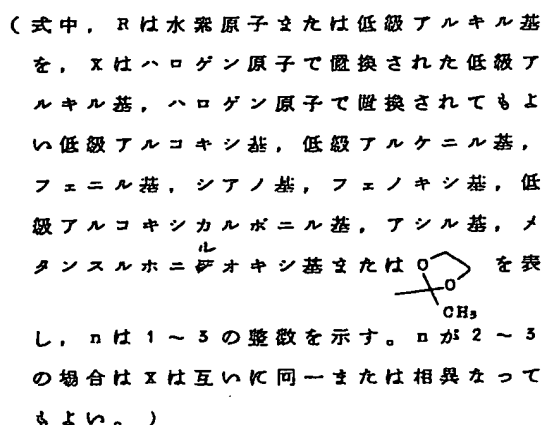 (式中,Rは水素原子または低級アルキル基
を,Xはハロゲン原子で置換された低級ア
ルキル基,ハロゲン原子で置換されてもよ
い低級アルコキシ基,低級アルケニル基,
フェニル基,シアノ基,フェノキシ基,低
級アルコキシカルボニル基,アシル基,メ
タンスルホニルオキシ基または
O
O
CH₃
を表
し,nは1~3の整数を示す。nが2~3
の場合はXは互いに同一または相異なって
もよい。)